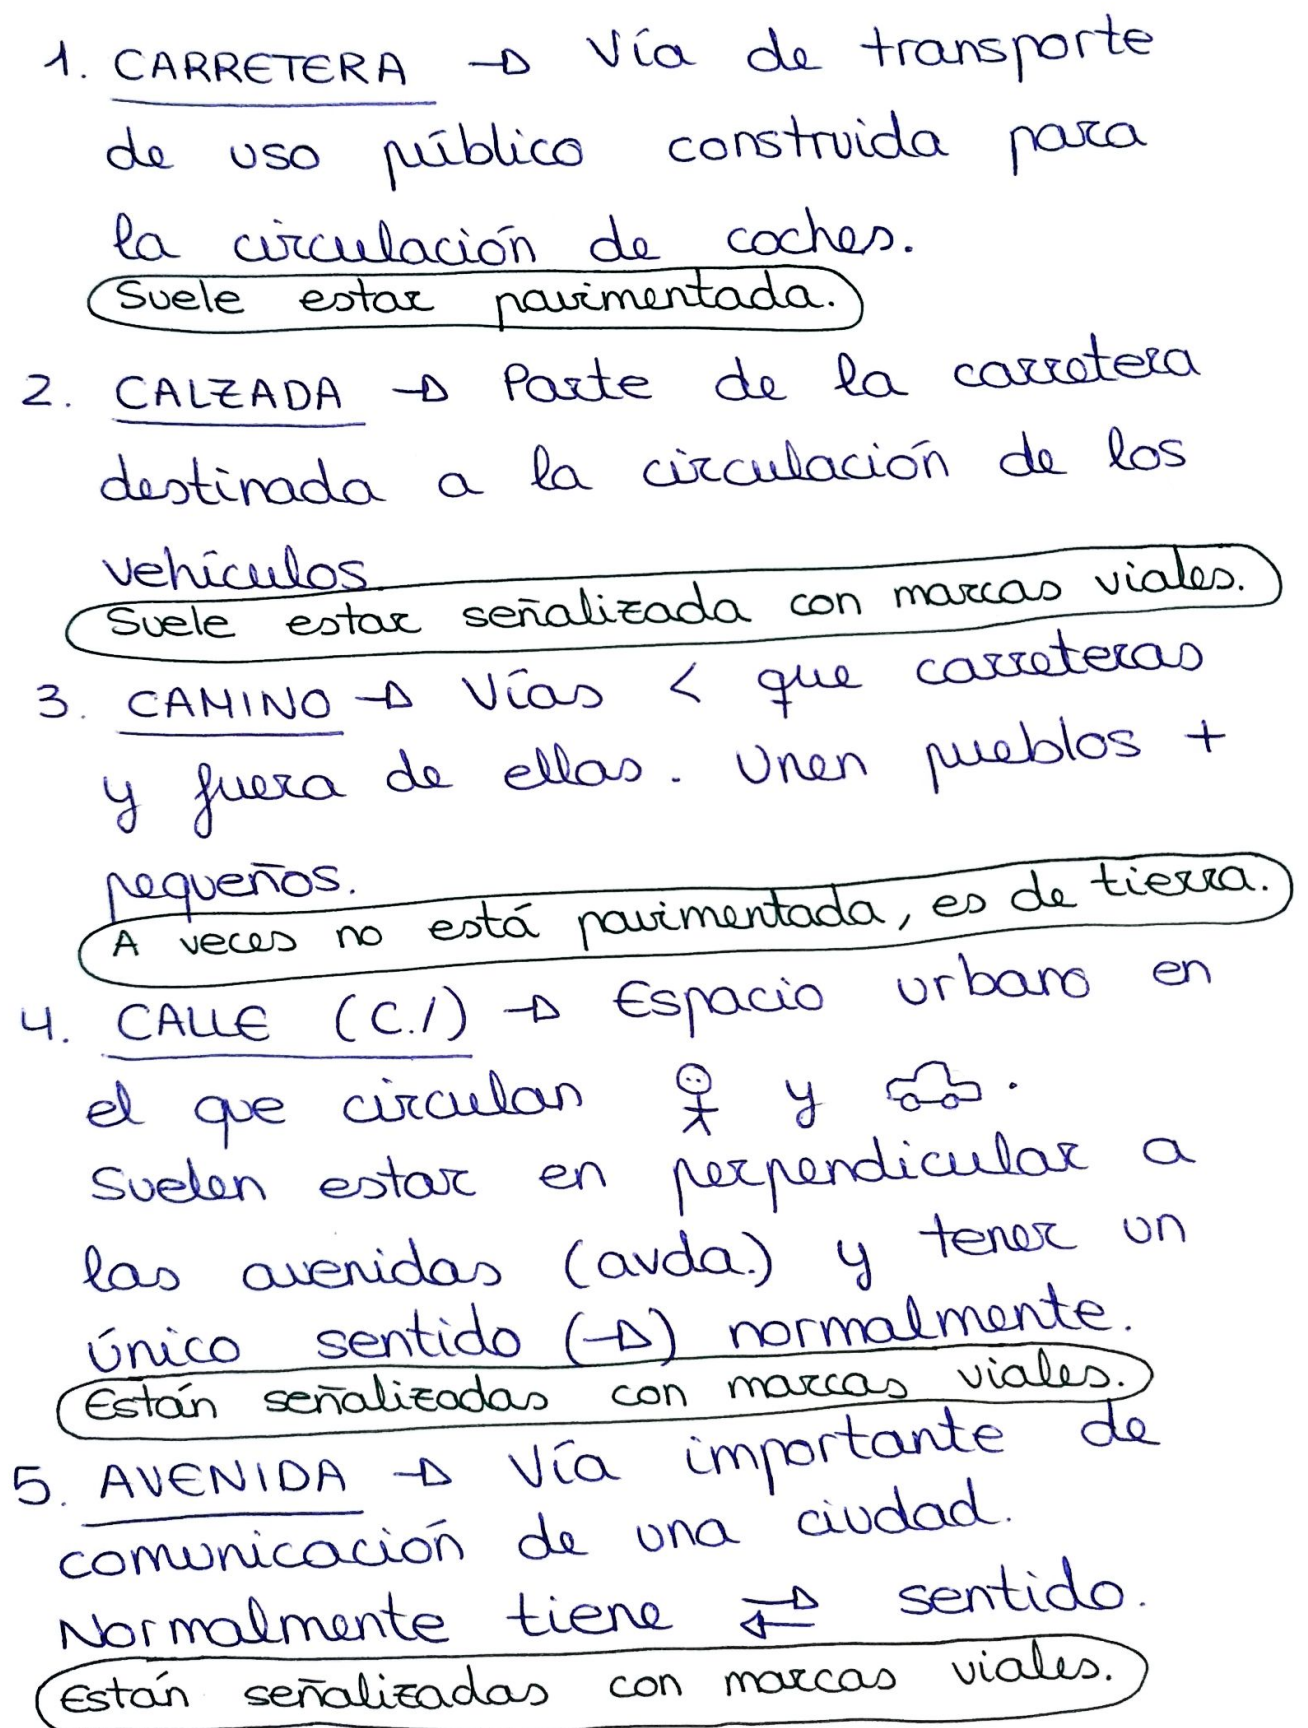 1. CARRETERA → Vía de transporte
de uso público construida para
la circulación de coches.
Suele estar pavimentada.
2. CALZADA → Parte de la carretera
destinada a la circulación de los
vehículos
Suele estar señalizada con marcas viales.
3. CAMINO → Vías < que carreteras
y fuera de ellas. Unen pueblos +
pequeños.
A veces no está pavimentada, es de tierra.
4. CALLE (C./) → Espacio urbano en
el que circulan y .
Suelen estar en perpendicular a
las avenidas (avda.) y tener un
único sentido (→) normalmente.
Están señalizadas con marcas viales.
5. AVENIDA → Vía importante de
comunicación de una ciudad.
Normalmente tiene ⇄ sentido.
Están señalizadas con marcas viales.